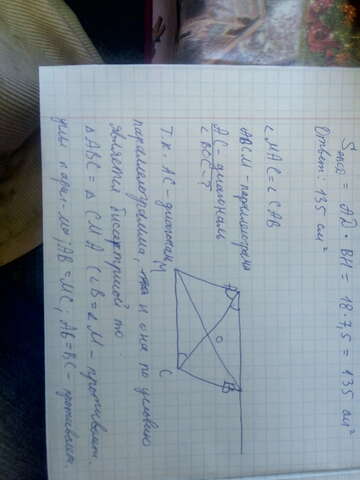 S ABCD = AD · BH = 18 · 7,5 = 135 см²
Ответ: 135 см²
∠MAC = ∠CAB
ABCM - параллелограмм
AC - диагональ
∠BOC - ?
Т.к. AC - диагональ
параллелограмма, и она по условию
является биссектрисой то
△ABC = △CMA (∠B = ∠M - противолеж.
углы парал-ма; AB = MC; AB = BC - противолеж
M
A
O
C
B